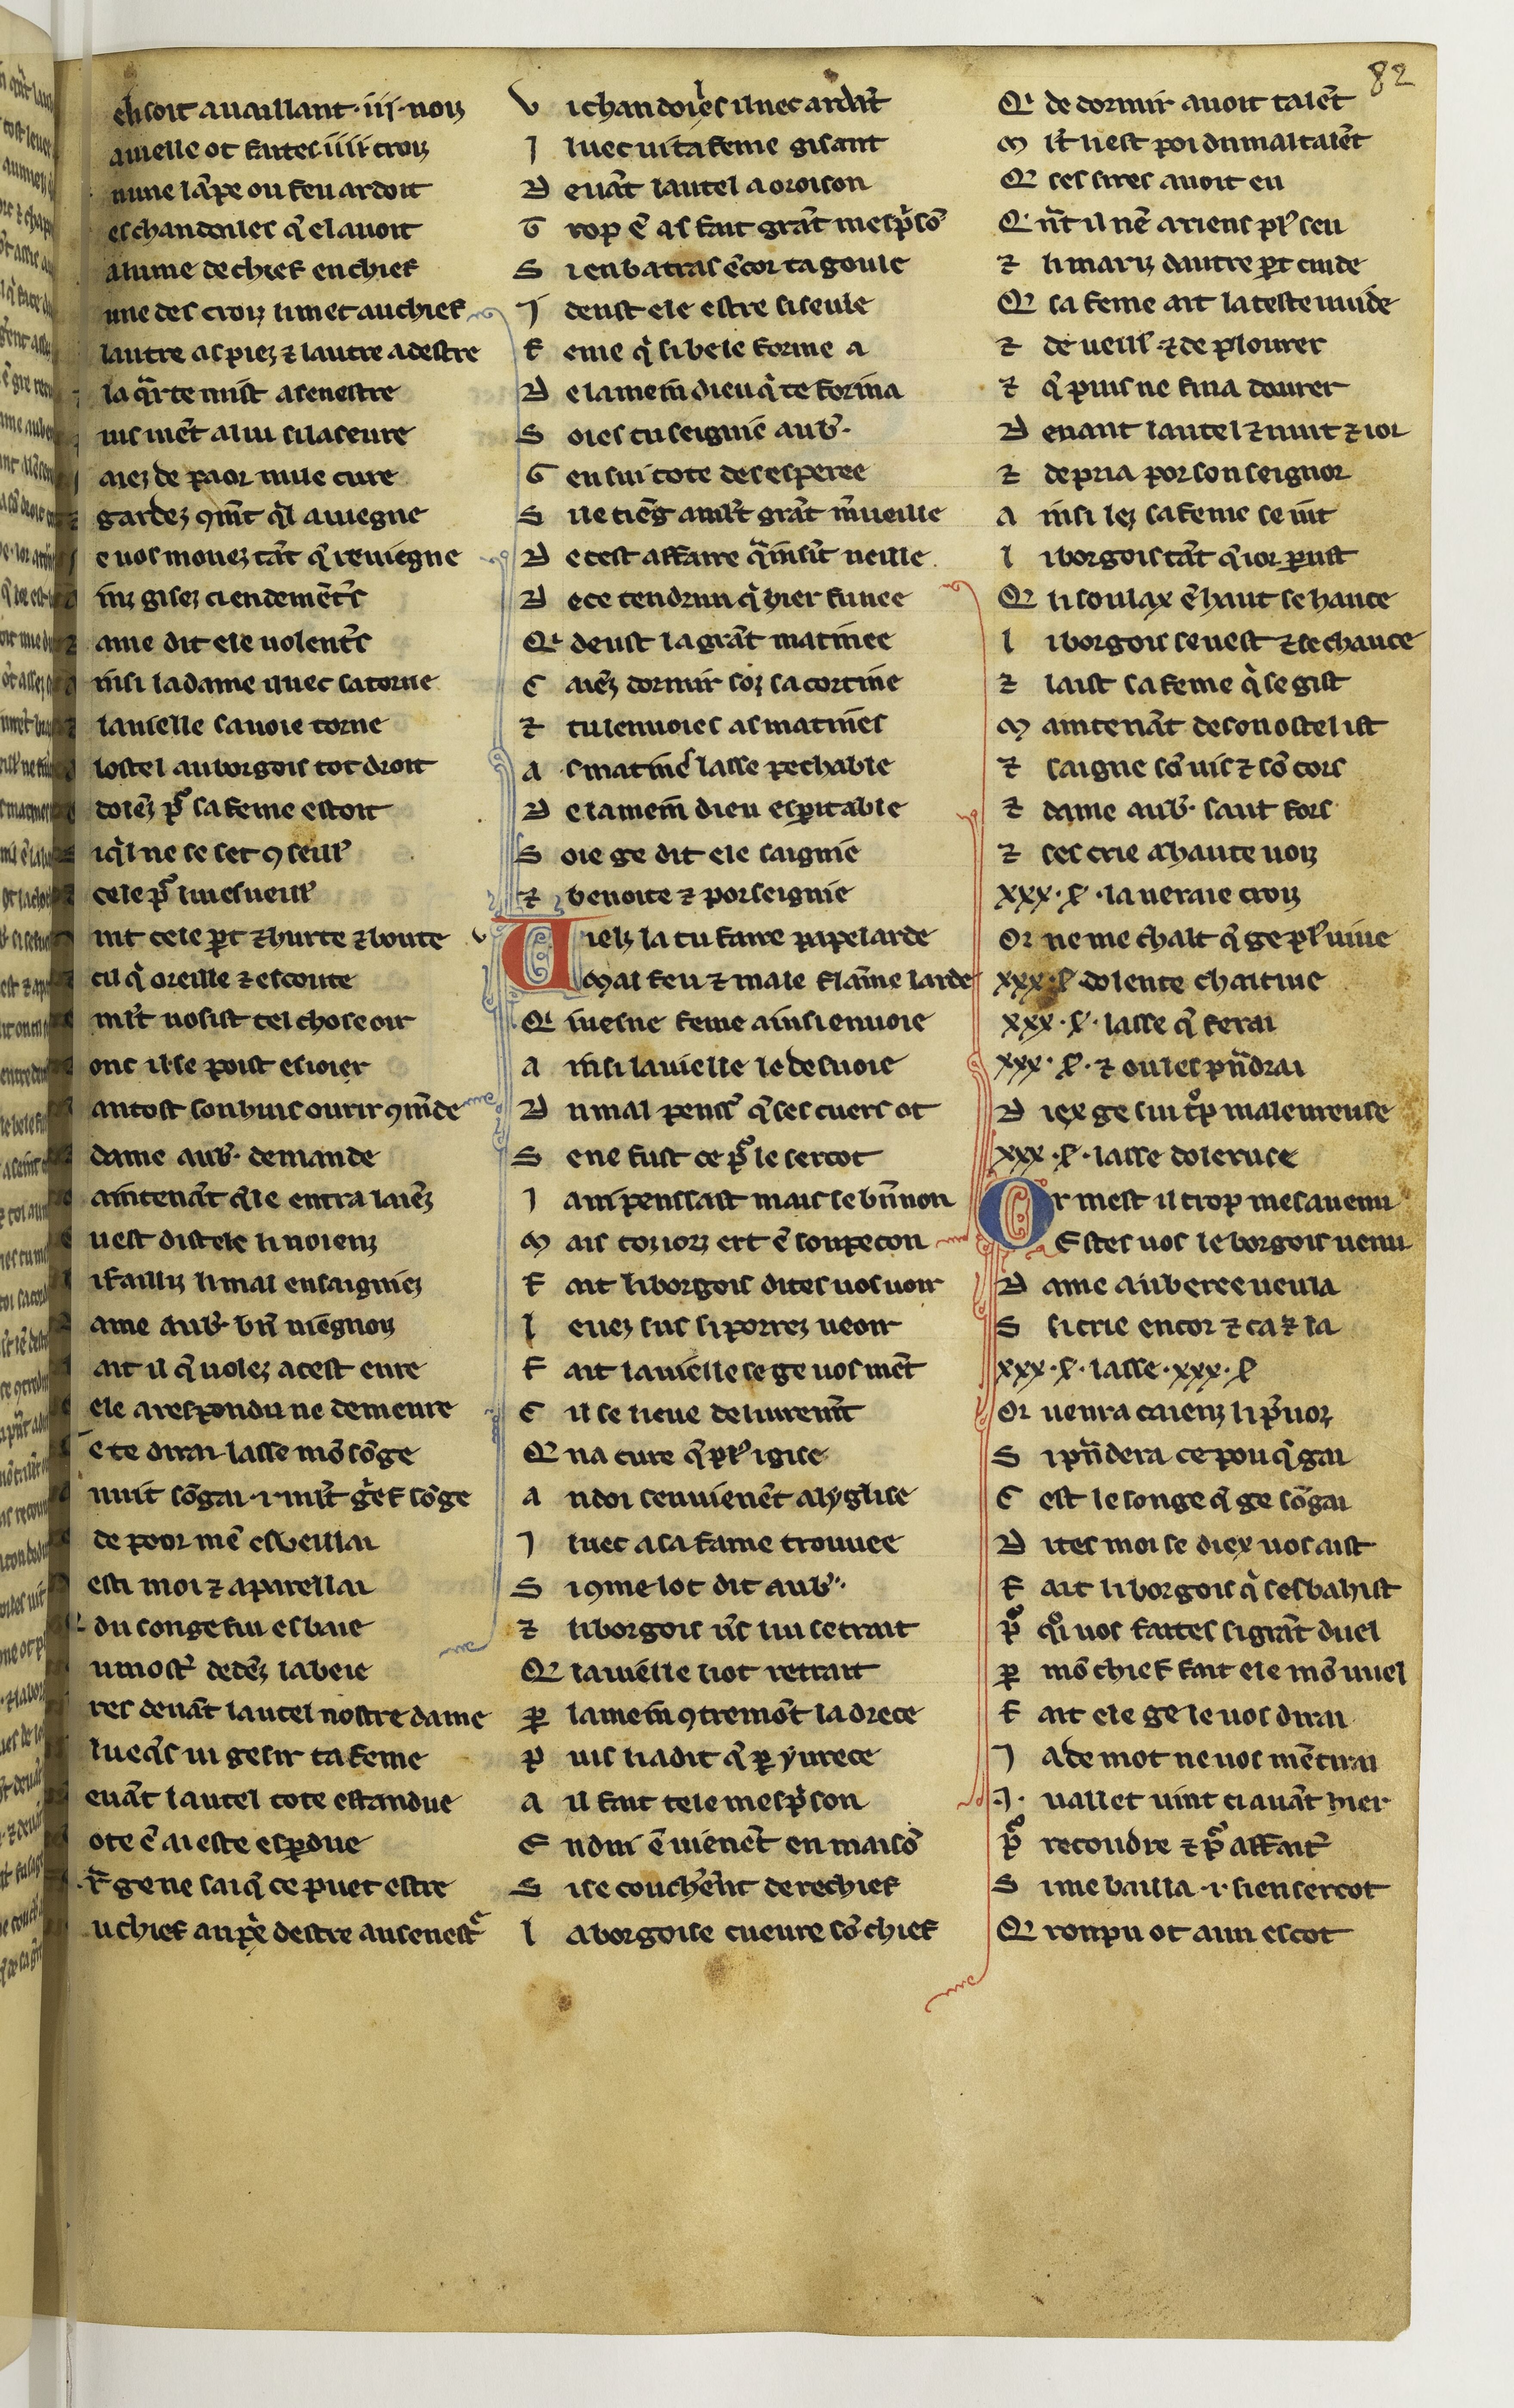 82
eli soit auaillant · iij · noiz
auielle ot faites · iiij · croiz
nune lāpe ou feu ardoit
es chandoiles q̄ el auoit
alume de chief en chief
une des croiz li met au chief
lautre as piez ⁊ lautre a destre
la qᵃrte mist a senestre
uis mēt a lui si lasseure
aiez de paor nule cure
gardez ꝯmt qͥl auiegne
e uos mouez tāt q̄ reuiegne
iīz gisez ci endemēt's
ame dit ele uolent's
īnsi la dame iluec satorne
la uielle sa uoie torne
lostel au borgois tot droit
dolēz pͦ sa feme estoit
i qͥl ne se set ꝯseill'
cele pͦ lui esueill'
int cele ꝑt ⁊ hurte ⁊ boute
cil qͥ oreille ⁊ escoute
mlt uosist tel chose oir
onc il se poist esioier
antost son huis ourir ꝯmāde
dame aub'. demande
aintenāt q̄le entra laiēz
uest dist ele li noienz
i failliz li mal ensaigniez
ame aub'. bn̄ uiēgnoiz
ait il q̄ uolez a cest eure
ele a respondu ne demeure
e te dirai lasse mō sōge
nuit sōgai · i · mlt gͥef sōge
de poor mē esveillai
esti moi ⁊ aparellai
du songe fui esbaie
u mostͥ dedēz labeie
res deuāt lautel nostre dame
lueq̄s ui gesir ta feme
euāt lautel tote estandue
ote ē ai este esꝑdue
r̄ ge ne sai q̄ ce puet estre
u chief au pͥe destre au senestͬ
V i chandoiles il uec ardāt
I luec ui ta feme gisant
D euāt lautel a oroison
T rop ē as fait grāt mespͥsō
S i en batras ēcor ta goule
I deust ele estre si seule
F eme qͥ si bele forme a
D e la mein dieu qͥ te forma
S oies tu seignie aub'.
T en sui tote desesperee
S ile tiēg a mlt grāt m̄ueille
D e cest affaire qͣinsīt ueille
D e ce tendrun qͥ hier fu nee
Q̄ deust la grāt matinee
C aiēz dormir soz sa cortine
⁊ tu lenuoies as matines
A s matīes lasse pechable
D e la mein dieu esꝑitable
S oie ge dit ele saignie
⁊ benoite ⁊ por seignie
V ielz la tu faire papelarde
Mal feu ⁊ male flāme larde
Q̄ iuesne feme ainsi enuoie
A insi la uielle le desuoie
D u mal pens' q̄ ses cuers ot
S e ne fust ce pͦ le sercot
I a ni pensast mais se bn̄ non
M ais toz iorz ert ē soupecon
F ait li borgois dites uos uoir
L euez sus si porrez ueoir
F ait la uielle se ge uos mēt
C il se lieue deliuremt
Q̄ na cure q̄ pͥ' i gise
A ndoi senuienēt a lyglise
I luec a sa fame trouuee
S i ꝯme lot dit aub'.
⁊ li borgois ūs lui se trait
Q̄ la uielle li ot retrait
ꝑ la mein ꝯtremōt la drece
P uis li a dit q̄ ꝑ yurece
A il fait tele mespͥson
E ndui ē uienēt en maisō
S i se couchēnt derechief
L a borgoise cueure sō chief
Q̄ de dormir auoit talēt
M lt nest poi du maltalēt
Q̄ ses sires auoit eu
Q̄ nt il nē a riens pͥ' seu
⁊ li mariz dautre ꝑt cuide
Q̄ sa feme ait la teste uuide
⁊ de ueill' ⁊ de plourer
⁊ q̄ puis ne fina dourer
D euant lautel ⁊ nuit ⁊ ior
⁊ depria por son seignor
A insi lez sa feme se iut
L i borgois tāt q̄ ior ꝑust
Q̄ li soulax ē haut se hauce
L i borgois se uest ⁊ se chauce
⁊ laist sa feme qͥ se gist
M aintenāt de son ostel ist
⁊ saigne sō uis ⁊ sō cors
⁊ dame aub'. saut fors
⁊ ses crie a haute uoiz
xxx · s̶ · la ueraie croiz
Or ne me chalt q̄ ge pͥ' uiue
xxx · s̶ · dolente chaitiue
xxx · s̶ · lasse q̄ ferai
xxx · s̶ · ⁊ ou les pn̄drai
D iex ge sui tͦp maleureuse
xxx · s̶ · lasse doleruse
Or mest il trop mesauenu
Estes uos le borgois uenu
D ame aubereeueula
S si crie encor ⁊ ca ⁊ la
xxx · s̶ · lasse · xxx · s̶
Or uenra caienz li p̄uoz
S i pn̄dera ce pou q̄ gai
C est le songe q̄ ge sōgai
D ites moi se diex uos aist
F ait li borgois qͥ sesbahist
pͦ qͦi uos faites si grāt duel
ꝑ mō chief fait ele mō uuel
F ait ele ge le uos dirai
I a de mot ne uos mētirai
· I · uallet uint ci auāt hier
pͦ recoudre ⁊ pͦ affait'
S i me bailla · i · sien sercot
Q̄ ronpu ot a un escot